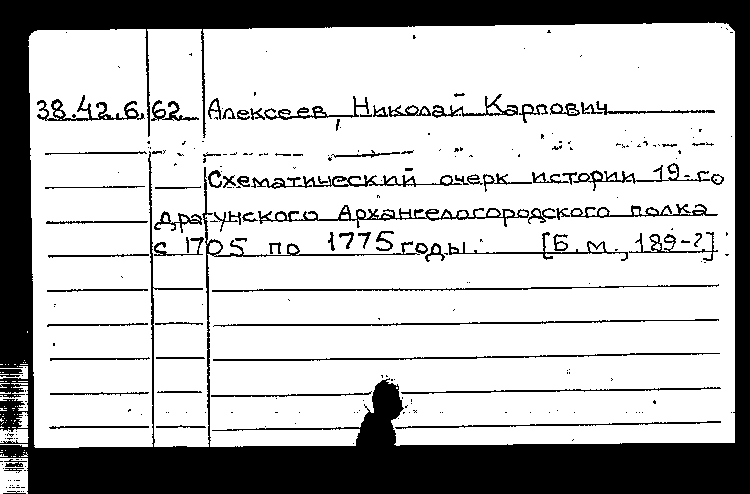 38.42.6.62 Алексеев, Николай Карпович
Схематический очерк истории 19-го
драгунского Архангелогородского полка
с 1705 по 1775 годы. [Б.м., 189-?].